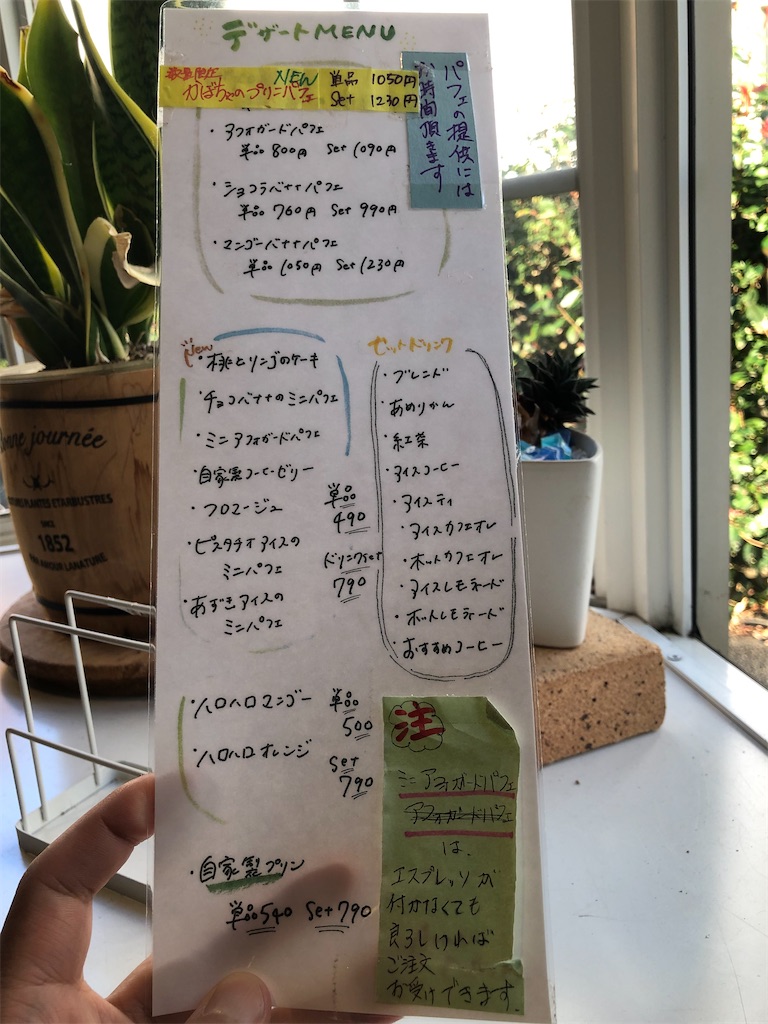 デザートMENU
数量限定 NEW 単品 1050円
かぼちゃのプリンパフェ Set 1230円
パフェの提供には
お時間頂きます
・アフォガードパフェ
単品 800円 Set 1090円
・ショコラバナナパフェ
単品 760円 Set 990円
・マンゴーバナナパフェ
単品 1050円 Set 1230円
New
・桃とリンゴのケーキ
・チョコバナナのミニパフェ
・ミニアフォガードパフェ
・自家製コーヒーゼリー
・フロマージュ
・ピスタチオアイスの
ミニパフェ
・あずきアイスの
ミニパフェ
単品
490
ドリンクset
790
セットドリンク
・ブレンド
・あめりかん
・紅茶
・アイスコーヒー
・アイスティ
・アイスカフェオレ
・ホットカフェオレ
・アイスレモネード
・ホットレモネード
・おすすめコーヒー
・ハロハロマンゴー
・ハロハロオレンジ
単品
500
Set
790
・自家製プリン
単品540 Set790
注
ミニアフォガードパフェ
アフォガードパフェ
は、
エスプレッソが
付かなくても
良ろしければ
ご注文
お受けできます.
onne journée
PLANTES ETARBUSTRES
SINCE
1852